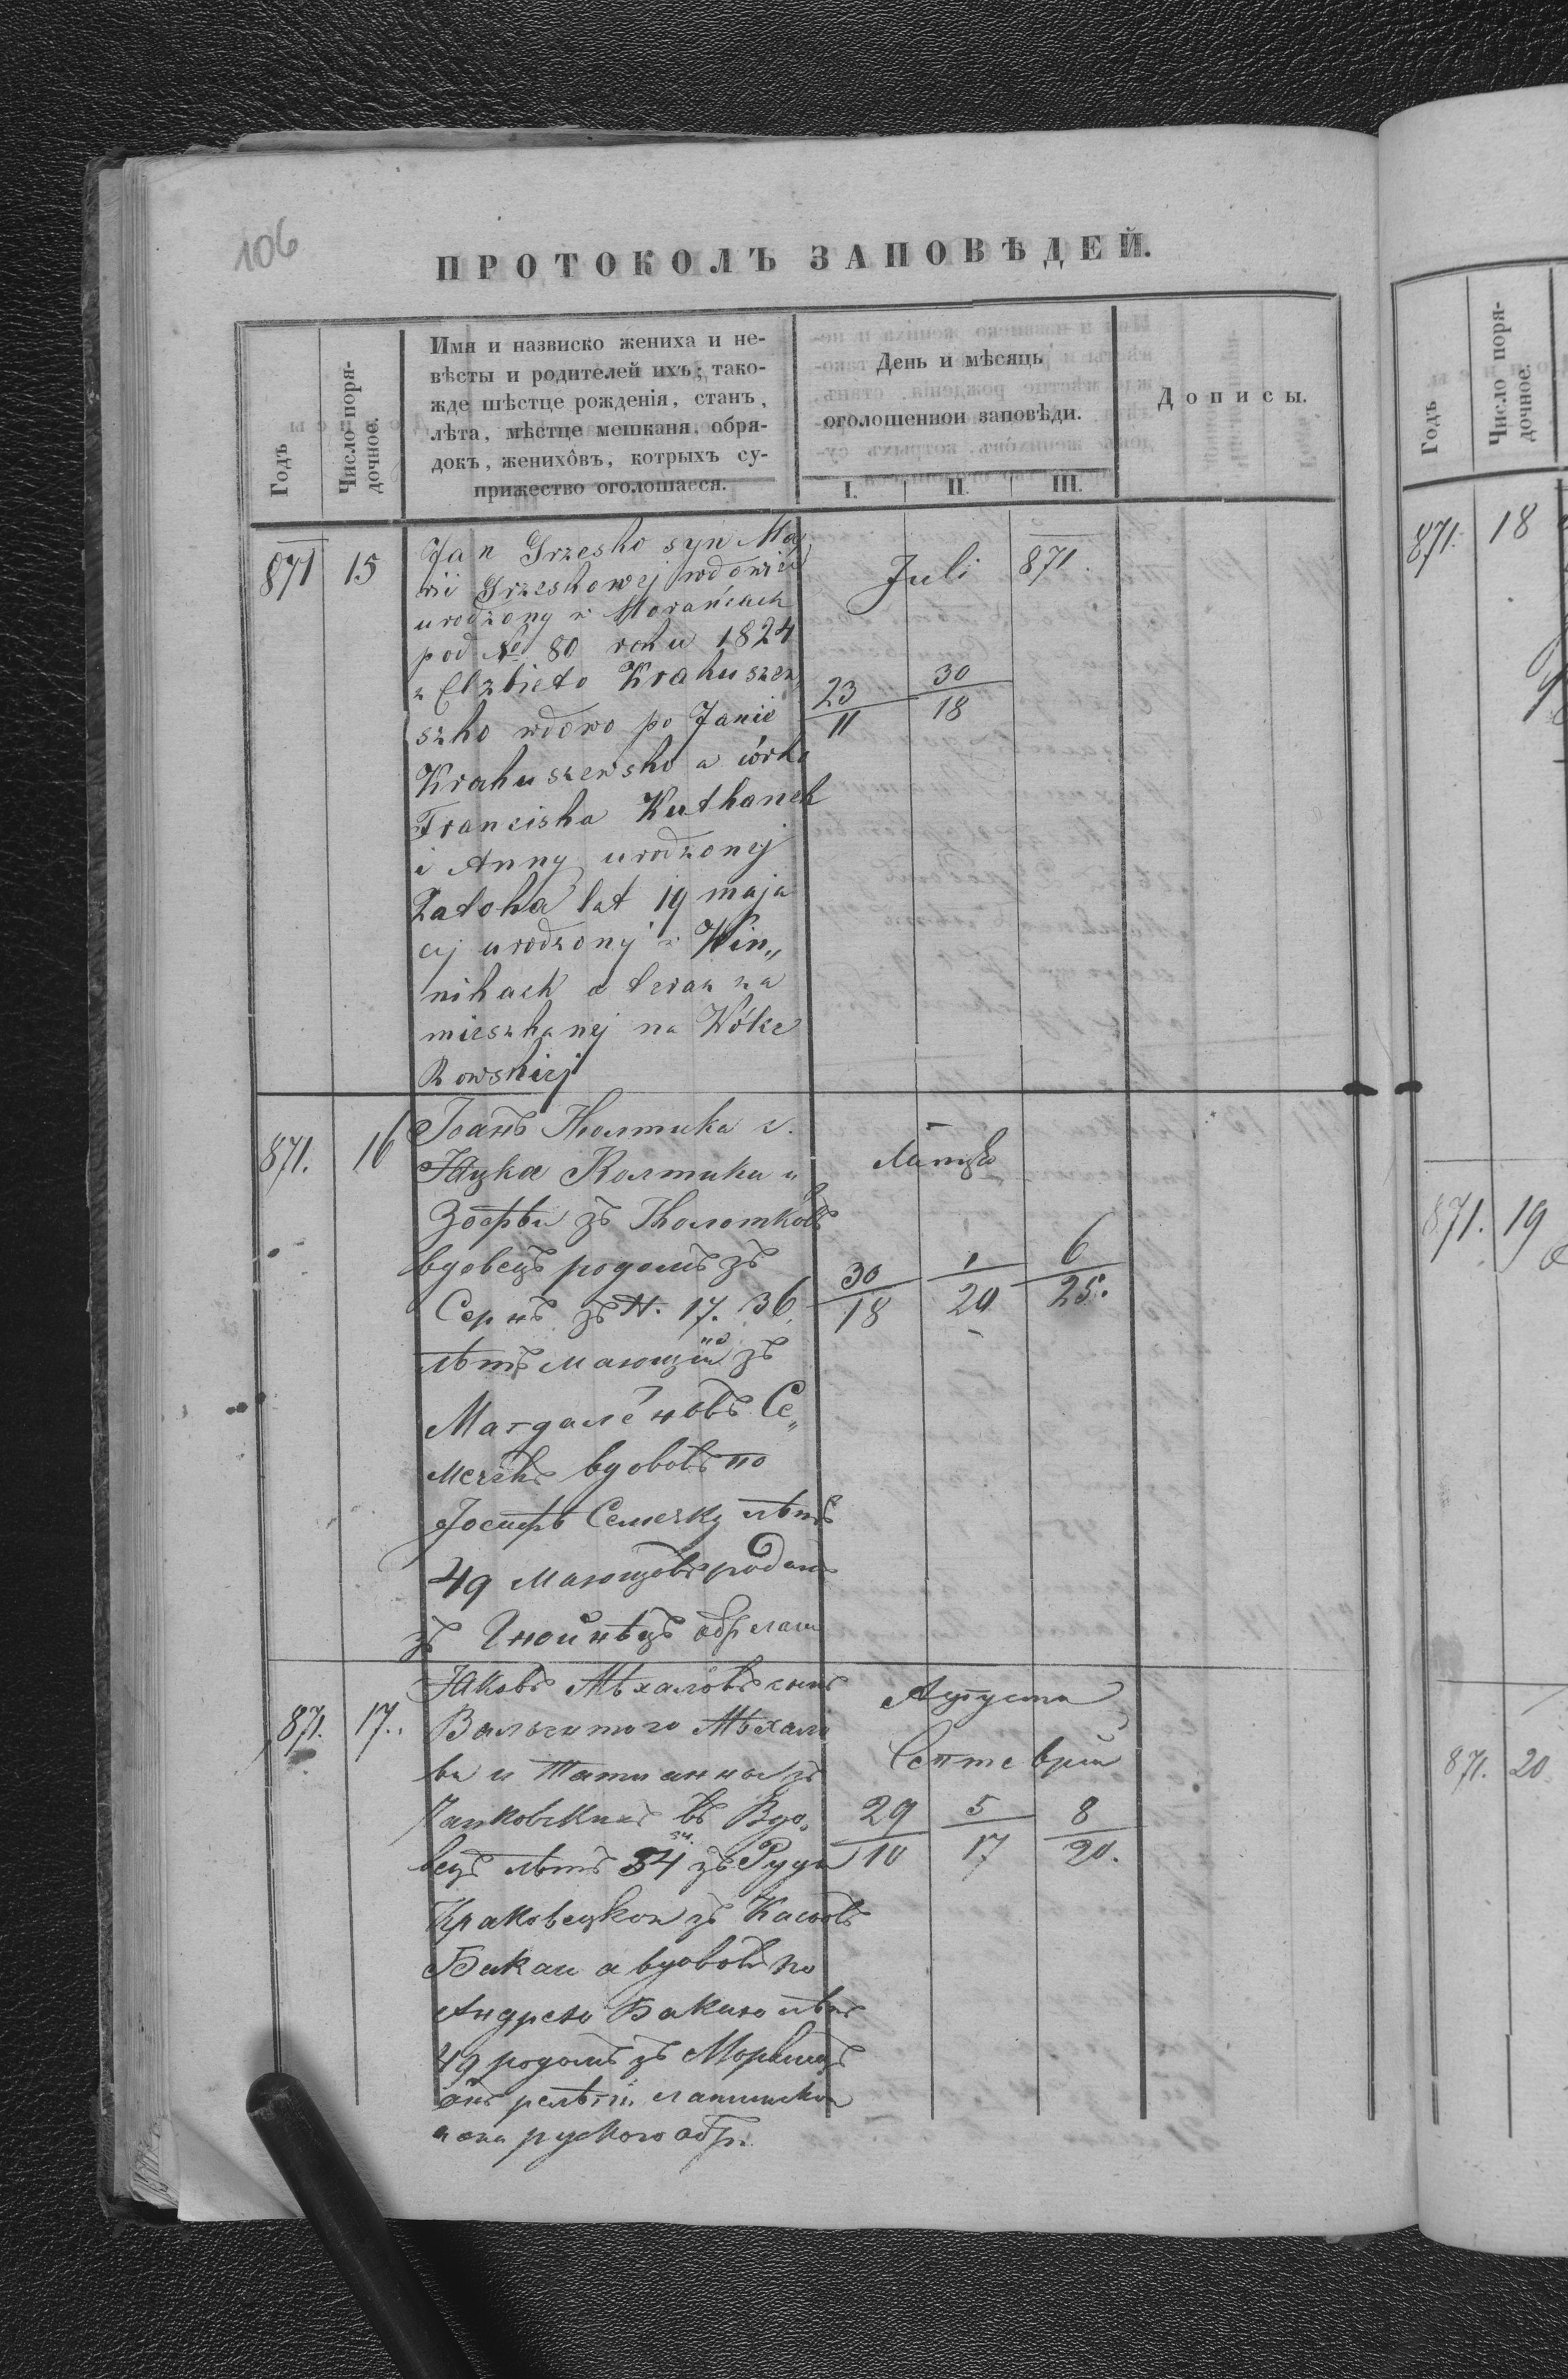 106
ПРОТОКОЛЪ ЗАПОВѢДЕЙ.
Годъ
Число поря-
дочное.
Имя и назвиско жениха и не-
вѣсты и родителей ихъ; тако-
жде мѣстце рожденія, станъ,
лѣта, мѣстце мешканя, обря-
докъ, женихôвъ, котрыхъ су-
прижество оголошаеся.
День и мѣсяць
оголошеннои заповѣди.
I. II. III.
Дописы.
871 15
Jan Grzesko syn Ma
rii Grzeskowej wdowiec
urodzony w Morańcach
pod No 80 roku 1824
z Elzbieto Krakuszew
szko wdowo po Janie
Krakuszewsko a córko
Franciska Kuthanek
i Anny urodzonej
Zatoka lat 19 maja
cej urodzonej w Win„
nikach a teraz za
mieszkanej na Wólce
Rowskiej
Juli 871.
23/11 30/18
871. 16
Іоанъ
Яцка Колтики и
Зофіи зъ
вдовецъ родомъ зъ
Сернъ зъ N. 17. 36
лѣтъ мающій зъ
Магдаленовъ Се„
мечкъ вдововъ по
Іосифѣ Семечку лѣтъ
49 мающовъ родомъ
зъ Гноинѣцъ
30/18 1/20 6/25.
871. 17.
Яковъ Мѣхаловъ сынъ
Мѣхало
ва и Татіанны зъ
въ Вдо„
вецъ лѣтъ 34 зъ Руды
Краковецкои зъ
а вдововъ по
Андрею лѣтъ
49 родомъ зъ
онъ латинскои
а она руского обр.
Августа
Септеврія
29/10 5/17 8/20.
Годъ
Число поря-
дочное.
871. 18
871. 19
871. 20